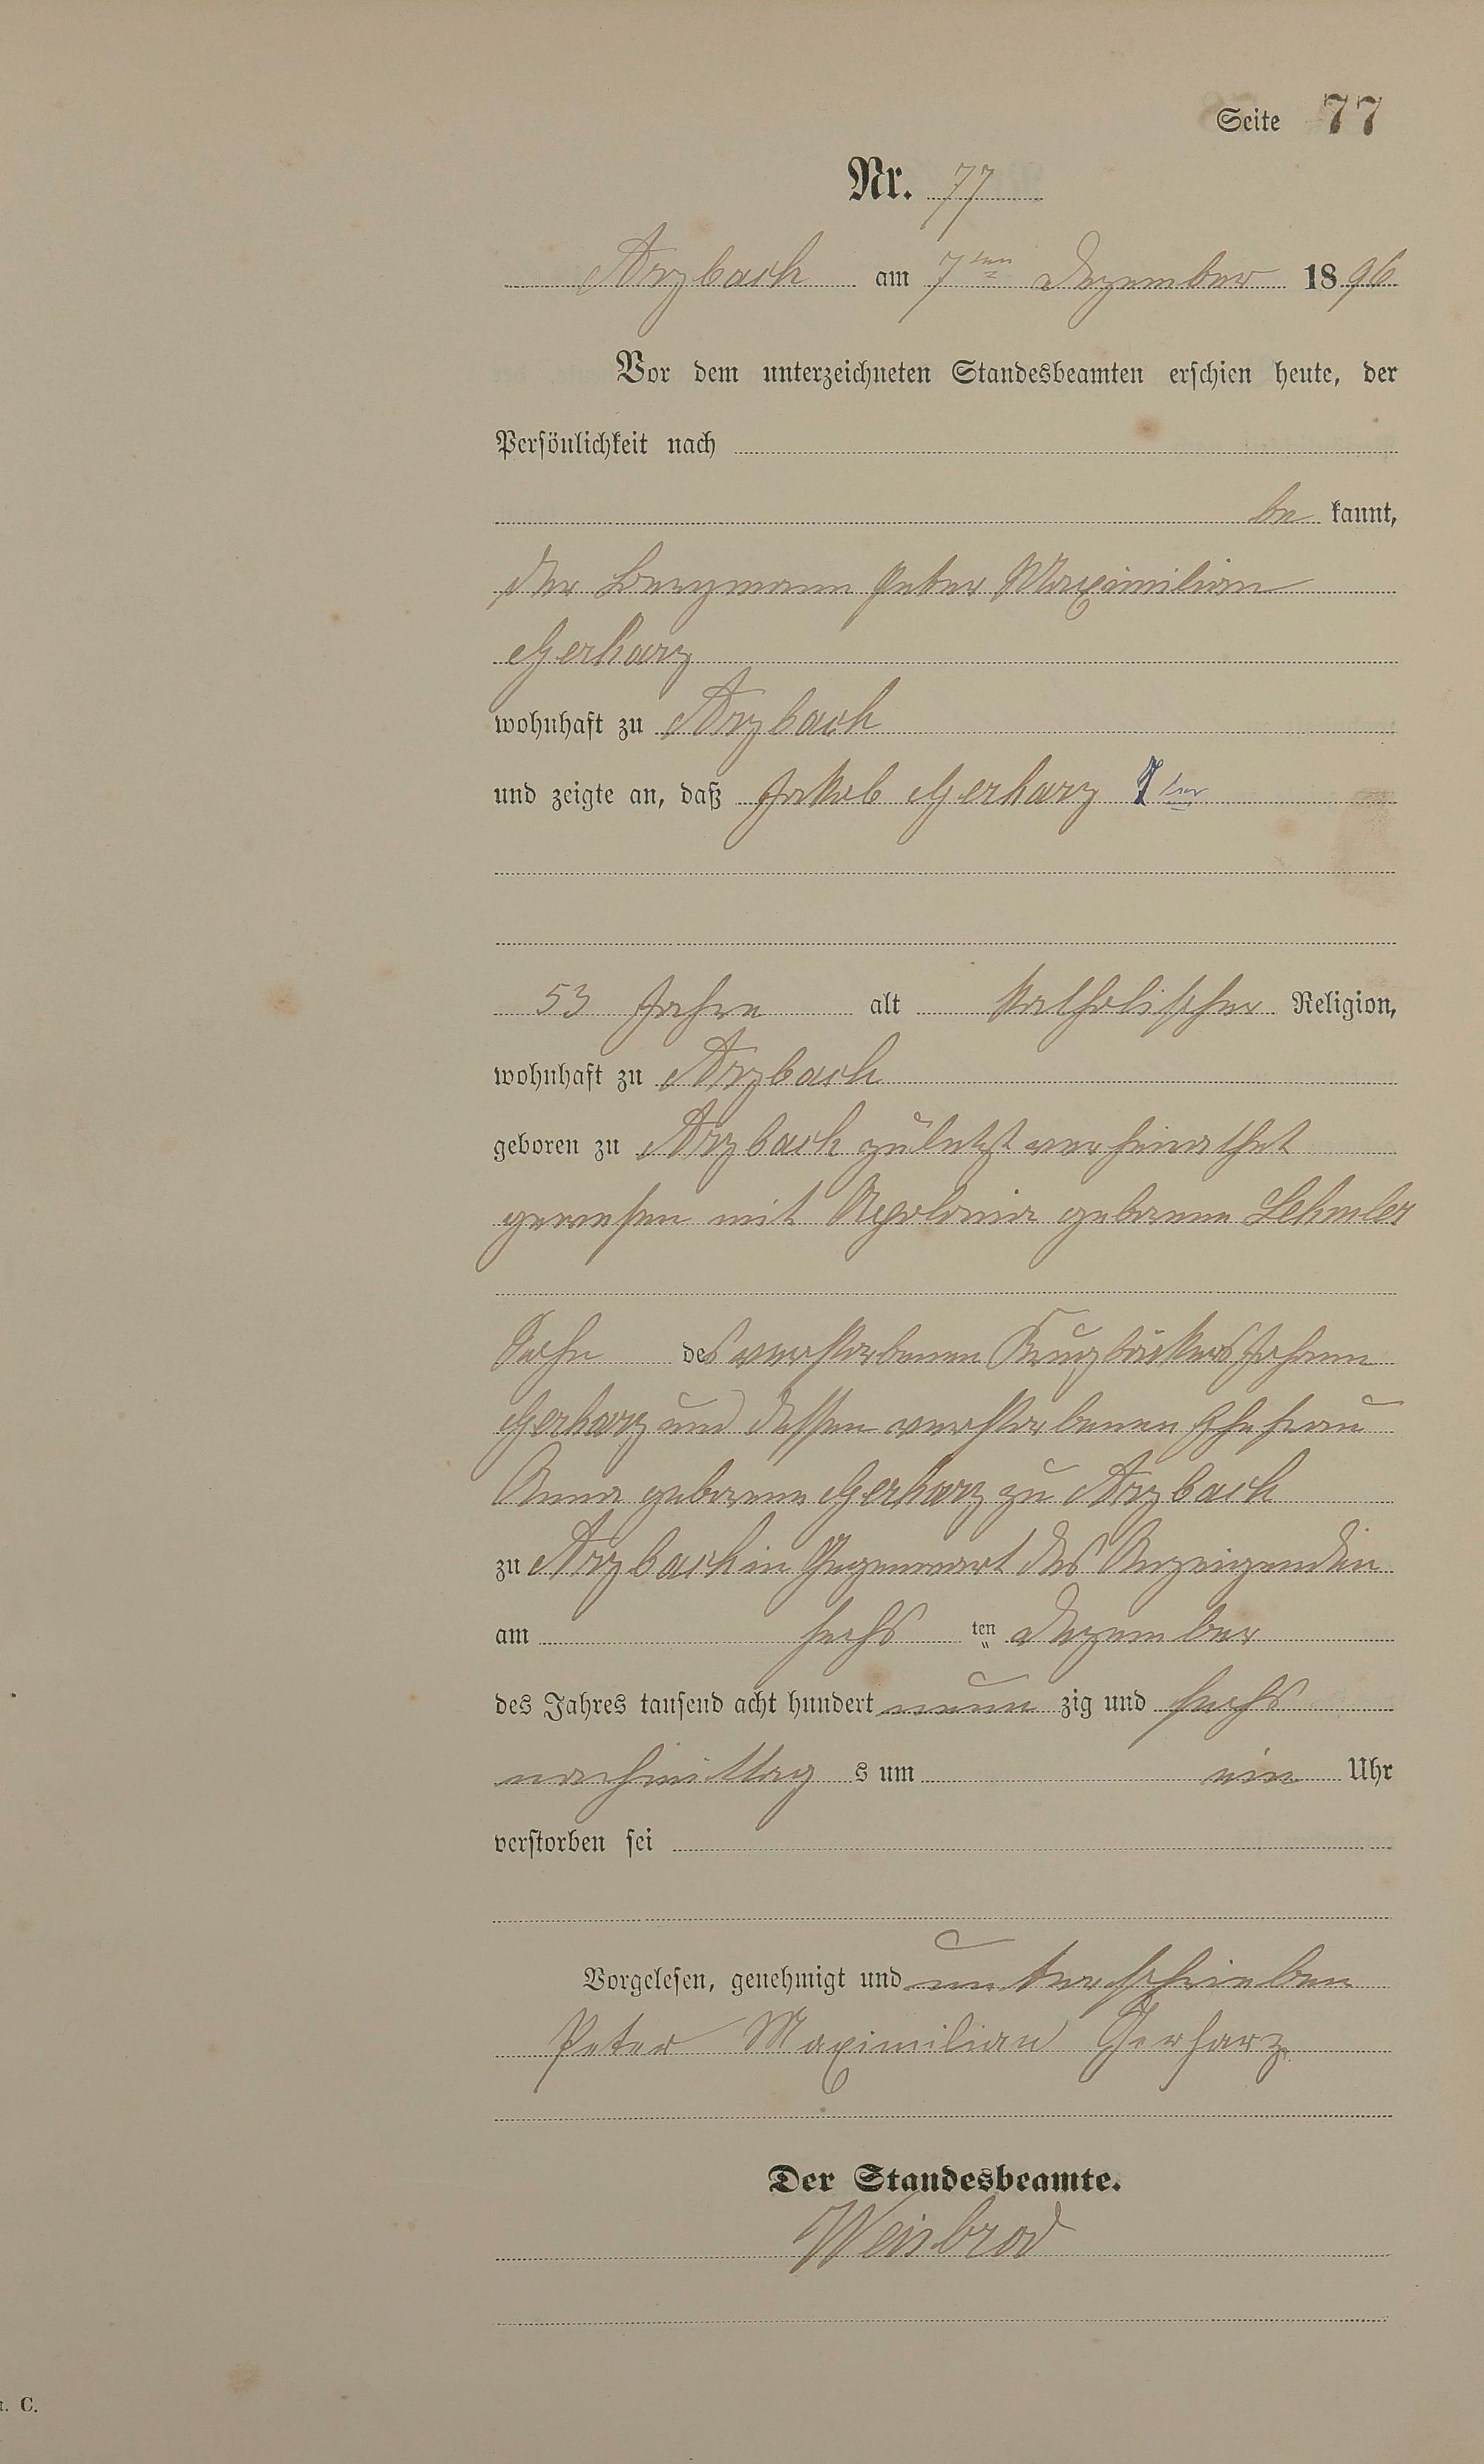 Seite 77
Nr. 77
Arzbach am 7ten Dezember 1896
Vor dem unterzeichneten Standesbeamten erschien heute, der
Persönlichkeit nach
be kannt,
der Bergmann Peter Maximilian
Gerharz
wohnhaft zu Arzbach
und zeigte an, daß Jakob Gerharz 1ter
53 Jahre alt katholischer Religion,
wohnhaft zu Arzbach
geboren zu Arzbach zuletzt verheirathet
gewesen mit Apolonia geborene Lehmler
Sohn des verstorbenen Krugbäckers Johann
Gerharz und dessen verstorbenen Ehefrau
Anna geborene Gerharz zu Arzbach
zu Arzbach in Gegenwart des Anzeigenden
am sechs ten Dezember
des Jahres tausend acht hundert neun zig und sechs
nachmittag s um ein Uhr
verstorben sei
Vorgelesen, genehmigt und unterschrieben
Peter Maximilian Gerharz
Der Standesbeamte.
Weisbrod
C.